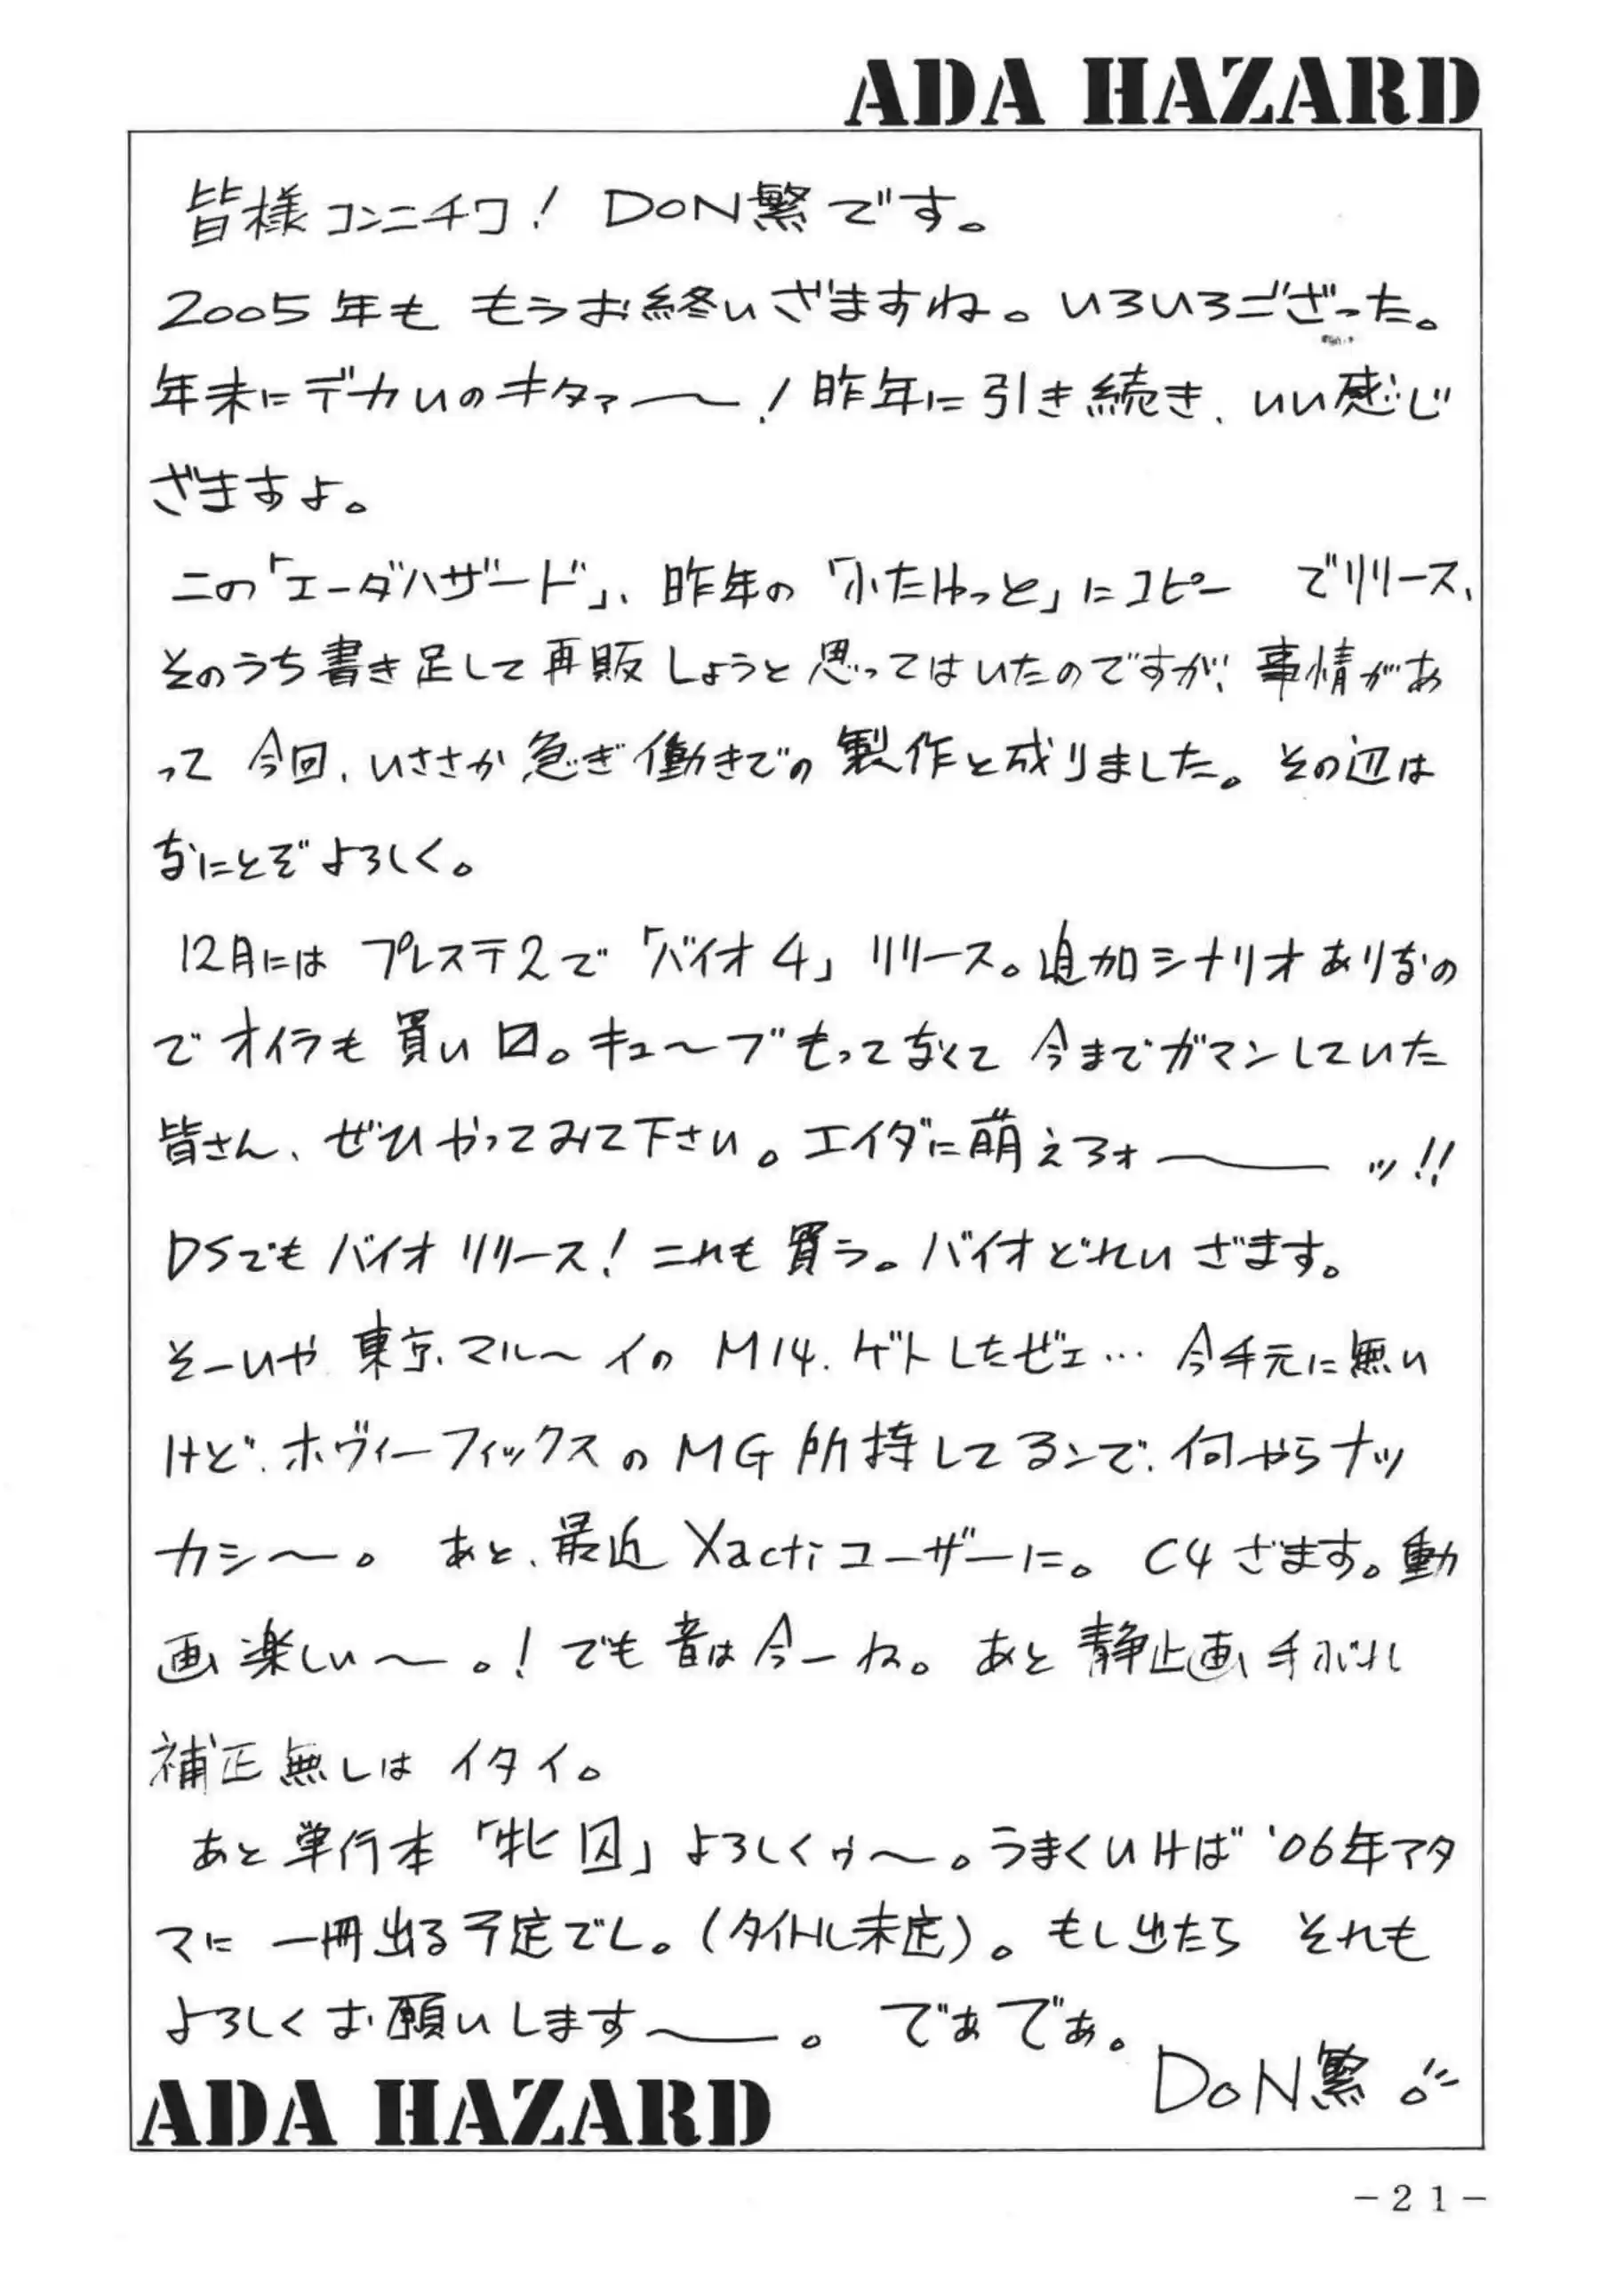 ADA HAZARD
皆様コンニチワ! DoN繁です。
2005年も もうお終いざますね。いろいろござった。
年末にデカいのキタァ〜!昨年に引き続き、いい感じ
ざますよ。
この「エーダハザード」、昨年の「ふたけっと」にコピー でリリース、
そのうち書き足して再販しようと思ってはいたのですが、事情があ
って 今回、いささか急ぎ働きでの製作と成りました。その辺は
なにとぞよろしく。
12月には プレステ2で「バイオ4」リリース。追加シナリオありなの
でオイラも買い口。キュ〜ブもってなくて 今までガマンしていた
皆さん、ぜひやってみて下さい。エイダに萌えろォ〜ッ!!
DSでもバイオリリース! これも買う。バイオどれいざます。
そーいや 東京、マル〜イの M14、ゲトしたぜェ… 今手元に無い
けど、ホヴィーフィックスのMG所持してるンで、何やらナッ
カシ〜。 あと、最近Xactiユーザーに。 C4ざます。動
画楽しい〜。! でも音は今一ね。あと静止画手ぶれ
補正無しはイタイ。
あと単行本「牝囚」よろしくゥ〜。うまくいけば '06年アタ
マに 一冊出る予定でし。(タイトル未定)。もし出たら それも
よろしくお願いします〜。 でぁでぁ。
DoN繁
ADA HAZARD
-21-